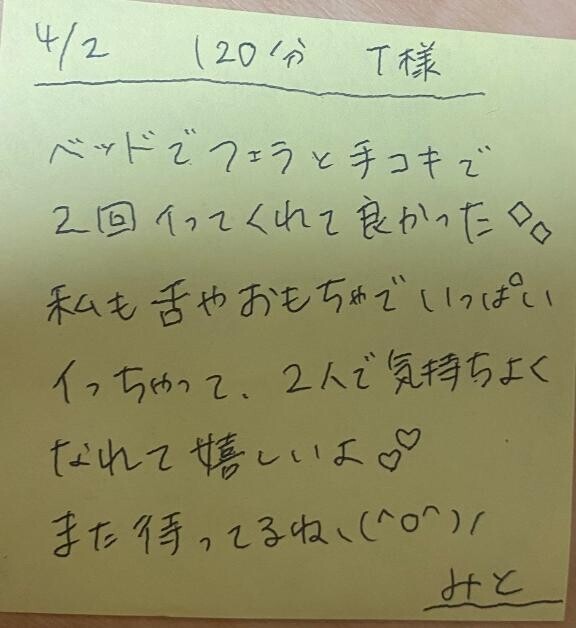 4/2 120分 T様
ベッドでフェラと手コキで
2回イってくれて良かった◇◇
私も舌やおもちゃでいっぱい
イっちゃって、2人で気持ちよく
なれて嬉しいよ♡♡
また待ってるね、(^o^)/
みと